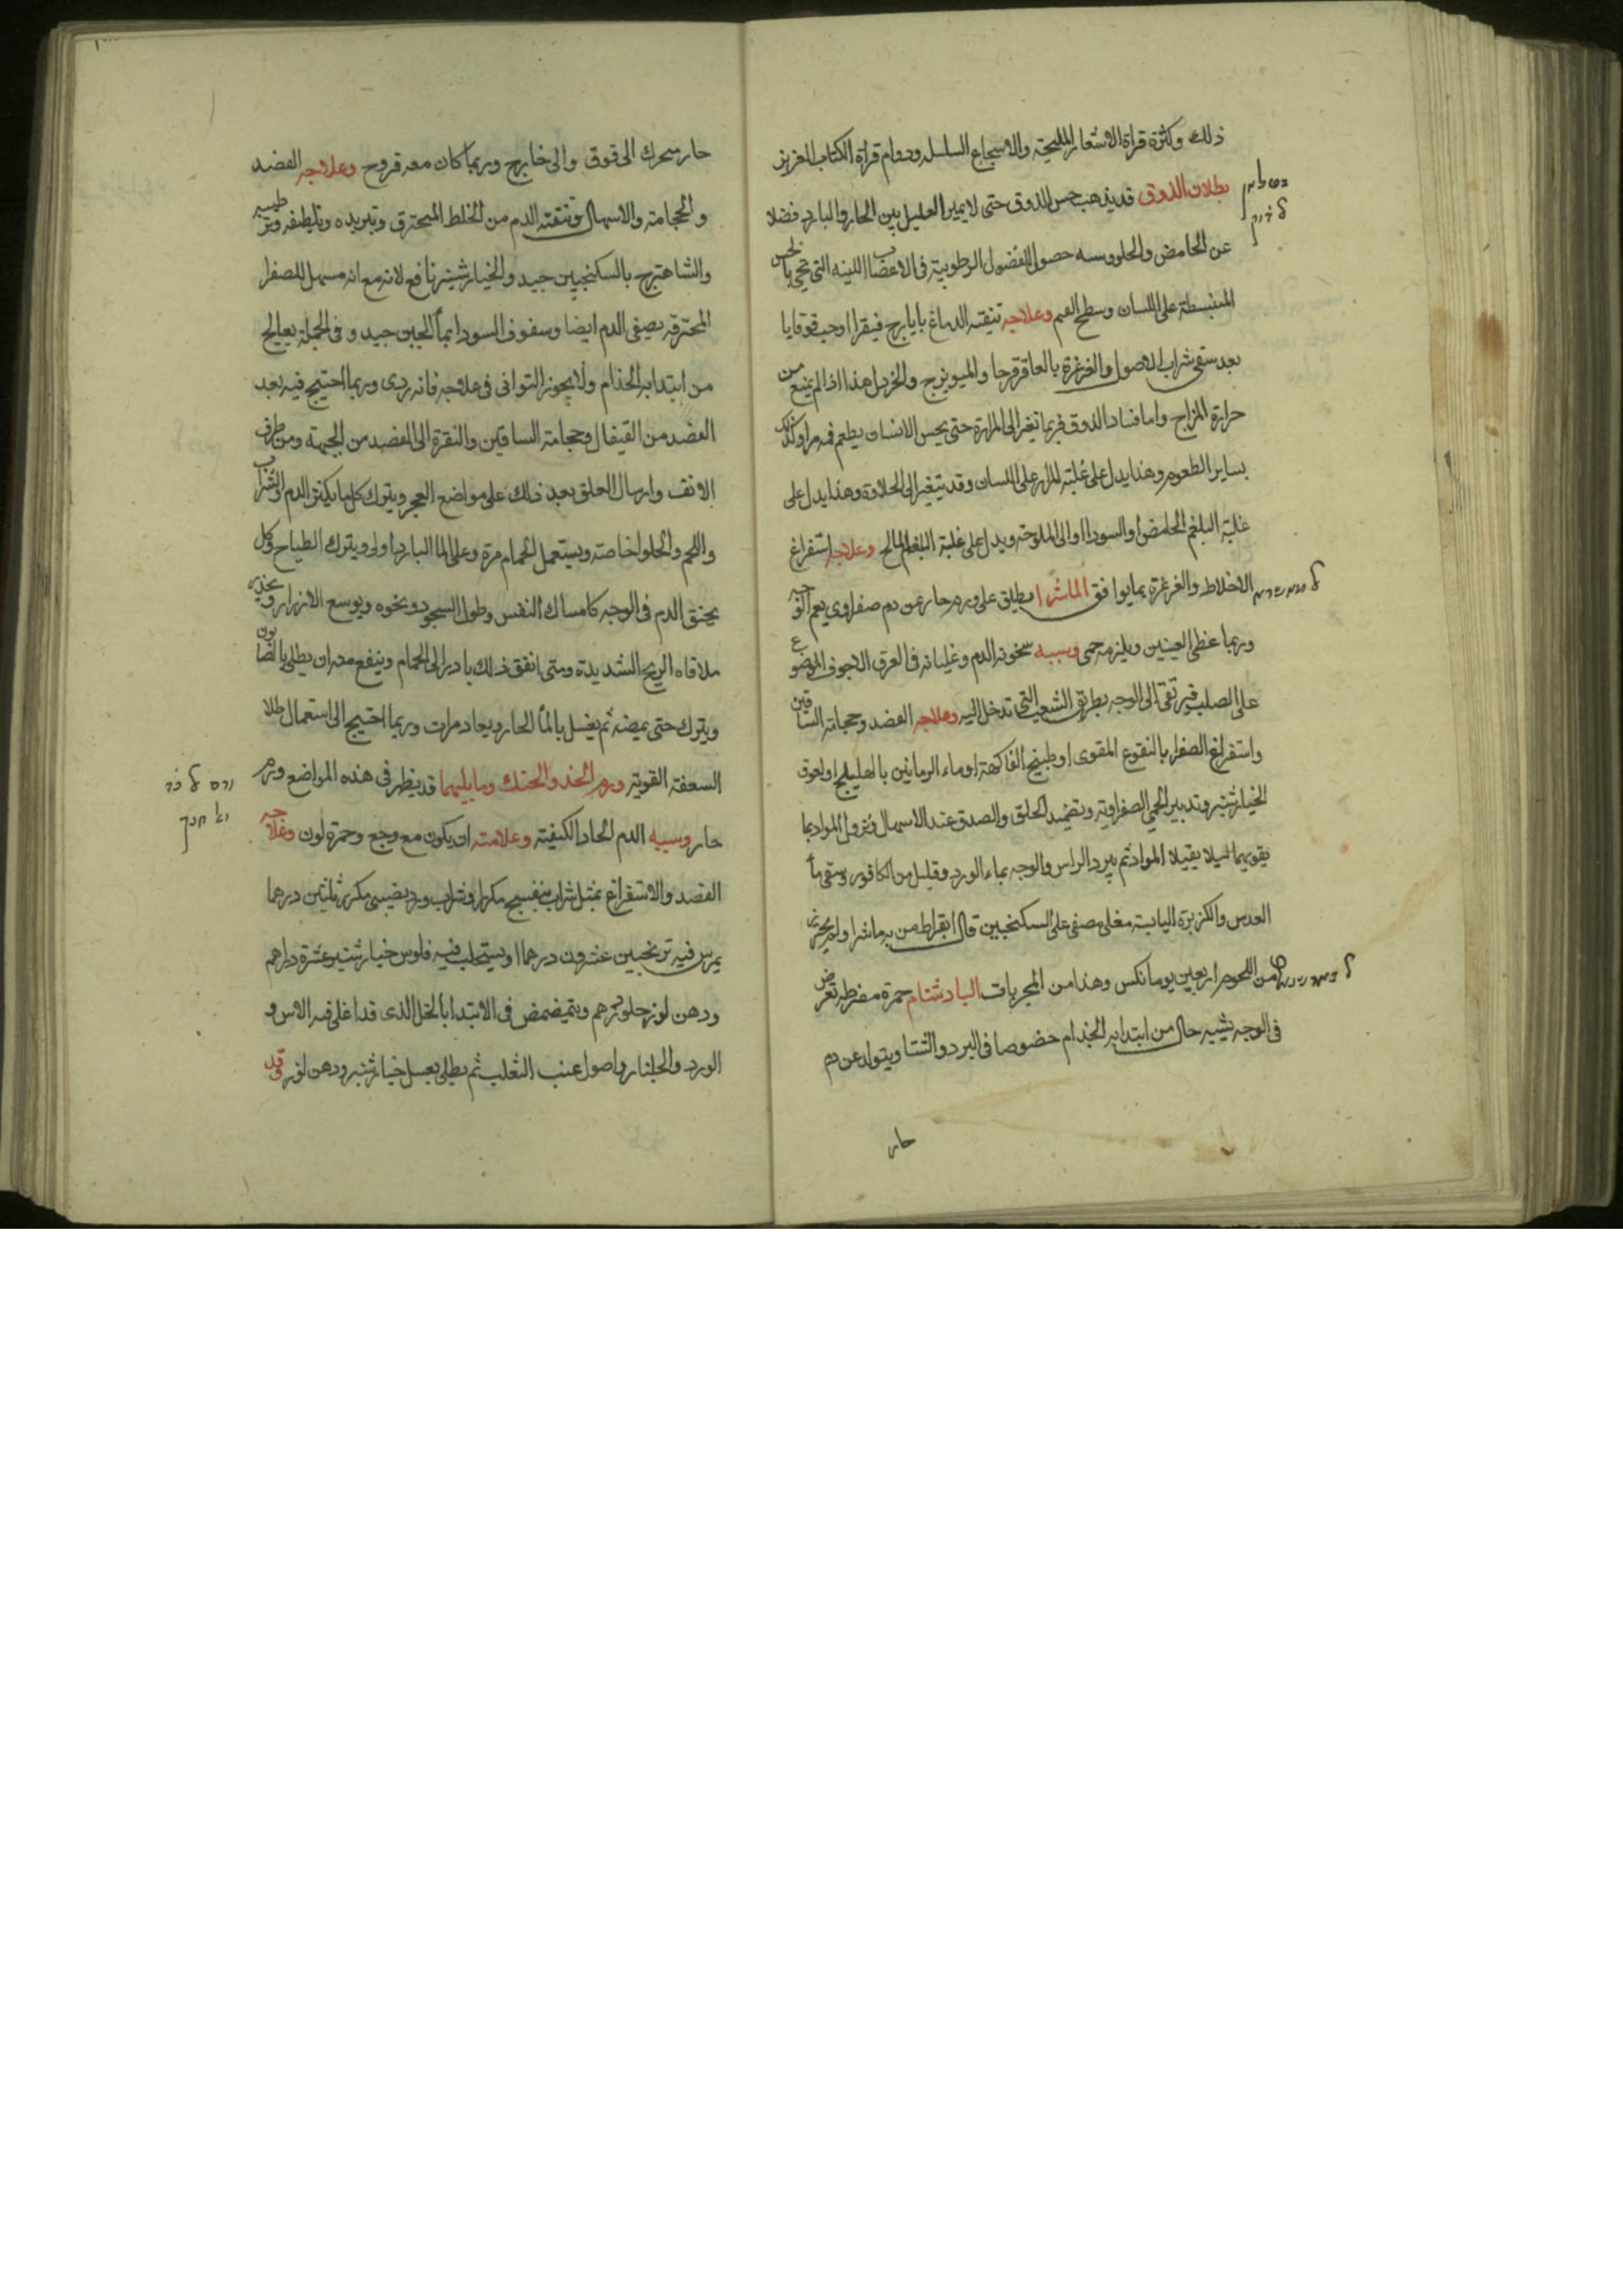 ذلك وكثرة قراة الاشعار المليحة والاسجاع السلسله ودوام قراة الكتاب العزيز
بطلان الذوق قد يذهب حس الذوق حتى لا يميز العليل بين الحار والبارد فضلا
عن الحامض والحلو وسببه حصول الفضول الرطوبية في الاعصاب اللينه التي تجي بالحس
المنبسطة على اللسان وسطح الفم وعلاجه تنقية الدماغ بايارج فيقرا او حب قوقايا
بعد سقي شراب الاصول والغرغرة بالعاقرقرحا والميويزج والخردل هذا اذا لم يمنع من
حرارة المزاج واما فساد الذوق فربما تغير الى المرارة حتى يحس الانسان بطعم فمه مرا وكذلك
بساير الطعوم وهذا يدل على غلبة المرار على اللسان وقد يتغير الى الحلاوة وهذا يدل على
غلبة البلغم الحامض او السودا او الى الملوحة ويدل على غلبة البلغم المالح وعلاجه استفراغ
الاخلاط والغرغرة بما يوافق الماشرا يطلق على ورم حار عن دم صفراوي يعم الوجه
وربما غطى العينين ويلزمه حمى وسببه سخونة الدم وغليانه في العرق الاجوف الموضوع
على الصلب فيرتقى الى الوجه بطريق الشعب التي تدخل اليه وعلاجه الفصد وحجامة الساقين
واستفراغ الصفرا بالنقوع المقوى او طبيخ الفاكهة او ماء الرمانين بالهليلج او لعوق
الخيارشنبر وتدبير الحمى الصفراوية وتضميد الحلق والصدر عند الاسهال ونزول المواد بما
يقويهما ليلا يقبلا المواد ثم يبرد الراس والوجه بماء الورد وقليل من الكافور وسقي ماء
العدس والكزبرة اليابسة مغلى مصفى على السكنجبين قال ابقراط من به ماشرا ولم يحترز
من اللحوم اربعين يوما نكس وهذا من المجربات البادشنام حمرة مفرطه تعرض
في الوجه يشبه حال من ابتدا به الجذام خصوصا في البرد والشتا ويتولد عن دم
حار
حار يتحرك الى فوق والى خارج وربما كان معه قروح وعلاجه الفصد
والحجامة والاسهال وتنقية الدم من الخلط المحترق وتبريده وتلطيفه وترطيبه
والشاهترج بالسكنجبين جيد والخيارشنبر نافع لانه مع انه مسهل للصفرا
المحترقه يصفى الدم ايضا وسفوف السودا بماء الجبن جيد وفي الجملة يعالج
من ابتدا به الجذام ولا يجوز التواني في علاجه فانه ردى وربما احتيج فيه بعد
الفصد من القيفال وحجامة الساقين والنقرة الى الفصد من الجبهة ومن طرف
الانف وارسال العلق بعد ذلك على مواضع الحمرة ويترك كل ما يكثر الدم والشراب
واللحم والحلوا خاصة ويستعمل الحمام مرة وعلى الماء البارد اولى ويترك الصياح وكل
يحنق الدم في الوجه كامساك النفس وطول السجود ونحوه ويوسع الازرار ويحذر
ملاقاه الريح الشديدة ومتى اتفق ذلك بادر الى الحمام وينفع منه ان يطلى بالصابون
ويترك حتى يمضه ثم يغسل بالماء الحار ويعاد مرات وربما احتيج الى استعمال طلا
السعفة القوية ورم الخد والحنك وما يليهما قد يظهر في هذه المواضع ورم
حار وسببه الدم الحاد الكيفية وعلامته ان يكون مع وجع وحمرة لون وعلاجه
الفصد والاستفراغ بمثل شراب بنفسج مكرر او شراب ورد نصيبي مكرر ثلثين درهما
يمرس فيه ترنجبين عشرون درهما او يستحلب فيه فلوس خيارشنبر عشرة دراهم
ودهن لوز حلو درهم ويتمضمض في الابتدا بالخل الذي قد اغلى فيه الاس و
الورد والجلنار واصول عنب الثعلب ثم يطلى بعسل خيارشنبر ودهن لوز وقد